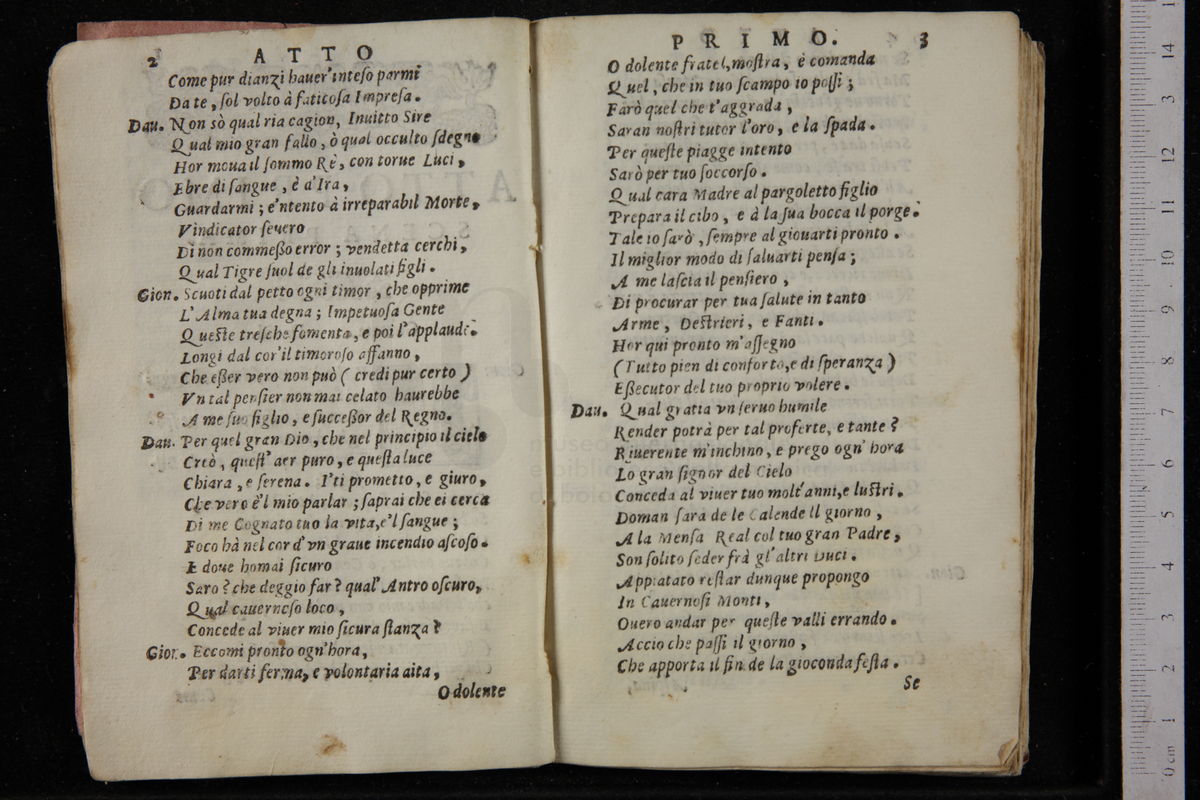 2 ATTO
Come pur dianzi hauer inteſo parmi
Da te, ſol volto à faticoſa Impreſa.
Dau. Non sò qual ria cagion, Inuitto Sire
Qual mio gran fallo, ò qual occulto ſdegno
Hor moua il ſommo Rè, con torue Luci,
Ebre di ſangue, è d'Ira,
Guardarmi; e'ntento à irreparabil Morte,
Vindicator ſeuero
Di non commeßo error; vendetta cerchi,
Qual Tigre ſuol de gli inuolati figli.
Gion. Scuoti dal petto ogni timor, che opprime
L'Alma tua degna; Impetuoſa Gente
Queſte treſche fomenta, e poi l'applaude.
Longi dal cor'il timoroſo affanno,
Che eßer vero non può (credi pur certo)
Vn tal penſier non mai celato haurebbe
A me ſuo figlio, e ſucceßor del Regno.
Dau. Per quel gran Dio, che nel principio il cielo
Creò, queſt' aer puro, e queſta luce
Chiara, e ſerena. I'ti prometto, e giuro,
Che vero è'l mio parlar; ſaprai che ei cerca
Di me Cognato tuo la vita, e'l ſangue;
Foco hà nel cor d'vn graue incendio aſcoſo.
E doue homai ſicuro
Saro? che deggio far? qual' Antro oſcuro,
Qual cauernoſo loco,
Concede al viuer mio ſicura ſtanza?
Gion. Eccomi pronto ogn'hora,
Per darti ferma, e volontaria aita,
O dolente
PRIMO. 3
O dolente fratel, moſtra, è comanda
Quel, che in tuo ſcampo io poſſi;
Farò quel che t'aggrada,
Saran noſtri tutor l'oro, e la ſpada.
Per queſte piagge intento
Sarò per tuo ſoccorſo.
Qual cara Madre al pargoletto figlio
Prepara il cibo, e à la ſua bocca il porge.
Tale io ſarò, ſempre al giouarti pronto.
Il miglior modo di ſaluarti penſa;
A me laſcia il penſiero,
Di procurar per tua ſalute in tanto
Arme, Deſtrieri, e Fanti.
Hor qui pronto m'aſſegno
(Tutto pien di conforto, e di ſperanza)
Eßecutor del tuo proprio volere.
Dau. Qual gratia vn ſeruo humile
Render potrà per tal proferte, e tante?
Riuerente m'inchino, e prego ogn' hora
Lo gran ſignor del Cielo
Conceda al viuer tuo molt'anni, e luſtri.
Doman ſara de le Calende Il giorno,
A la Menſa Real col tuo gran Padre,
Son ſolito ſeder frà gl'altri Duci.
Appiatato reſtar dunque propongo
In Cauernoſi Monti,
Ouero andar per queſte valli errando.
Accio che paſſi il giorno,
Che apporta il fin de la gioconda feſta.
Se